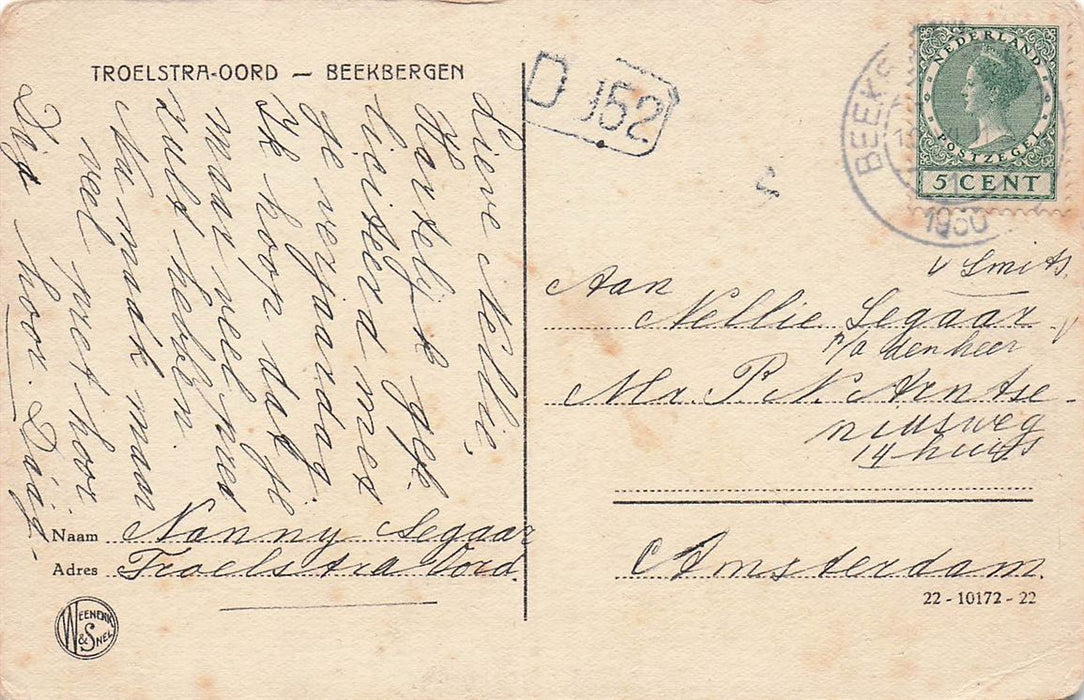 TROELSTRA-OORD — BEEKBERGEN
Lieve Nellie,
Hartelijk gefe-
liciteerd met
je verjaardag.
Ik hoop dat je
maar veel pret
zult hebben.
Nu maak maar
veel pret hoor
Dag hoor. Dáág.
Naam Nanny Segaar
Adres Troelstra Oord
WEENENK & SNEL
D 152
BEEK
1930
NEDERLAND
POSTZEGEL
5 CENT
v Smits
Aan
Nellie Segaar
p/a den heer
Mr. P. N. Arntze-
niusweg
14 huis
Amsterdam.
22 - 10172 - 22